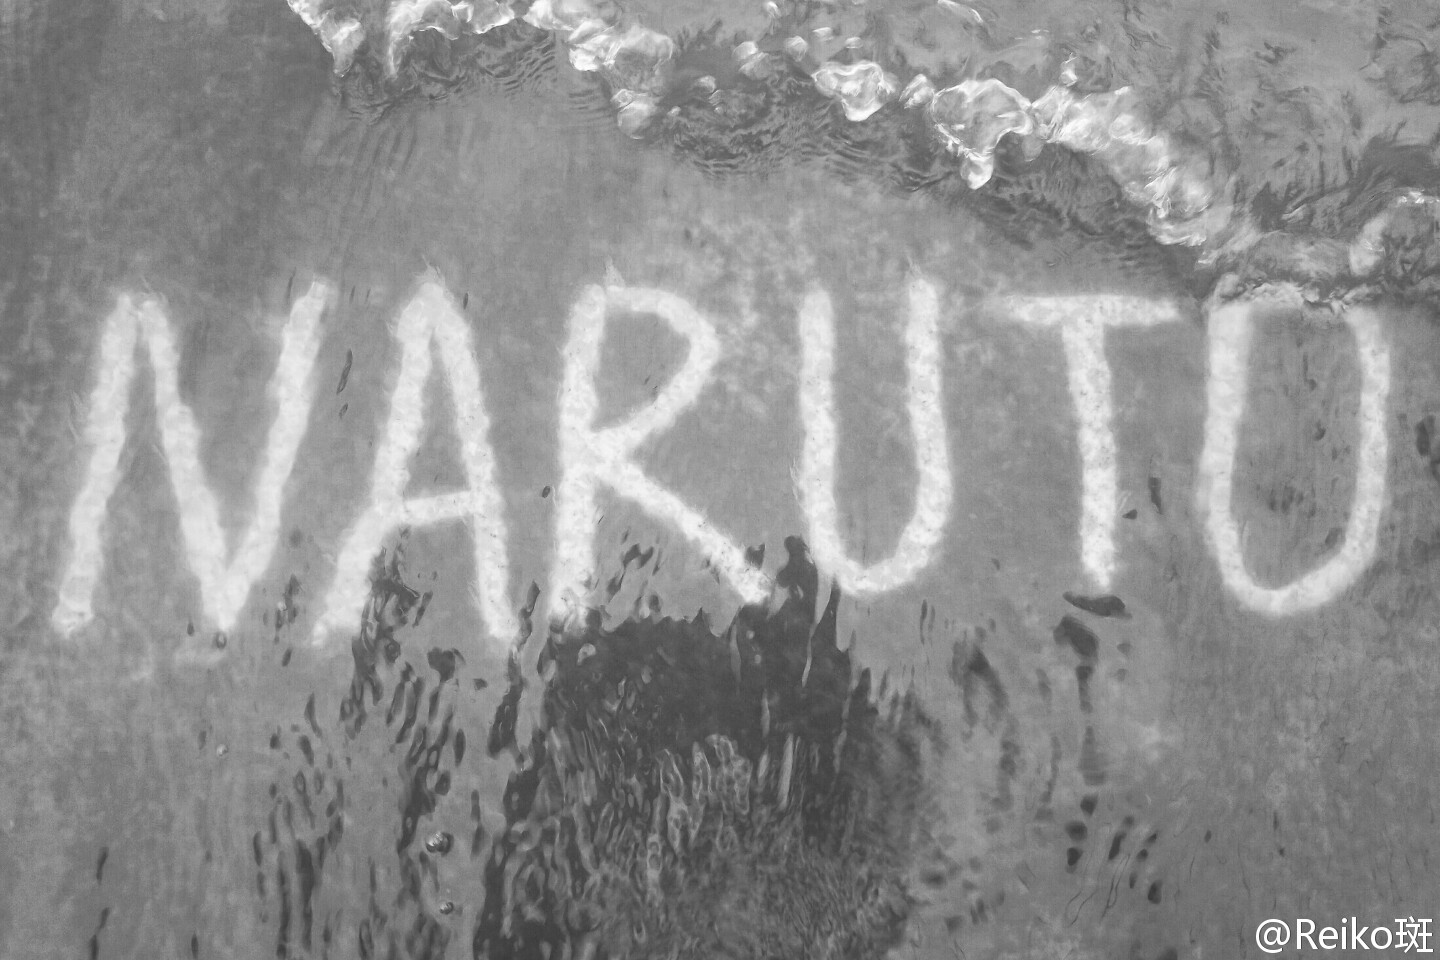 NARUTO
@Reiko斑